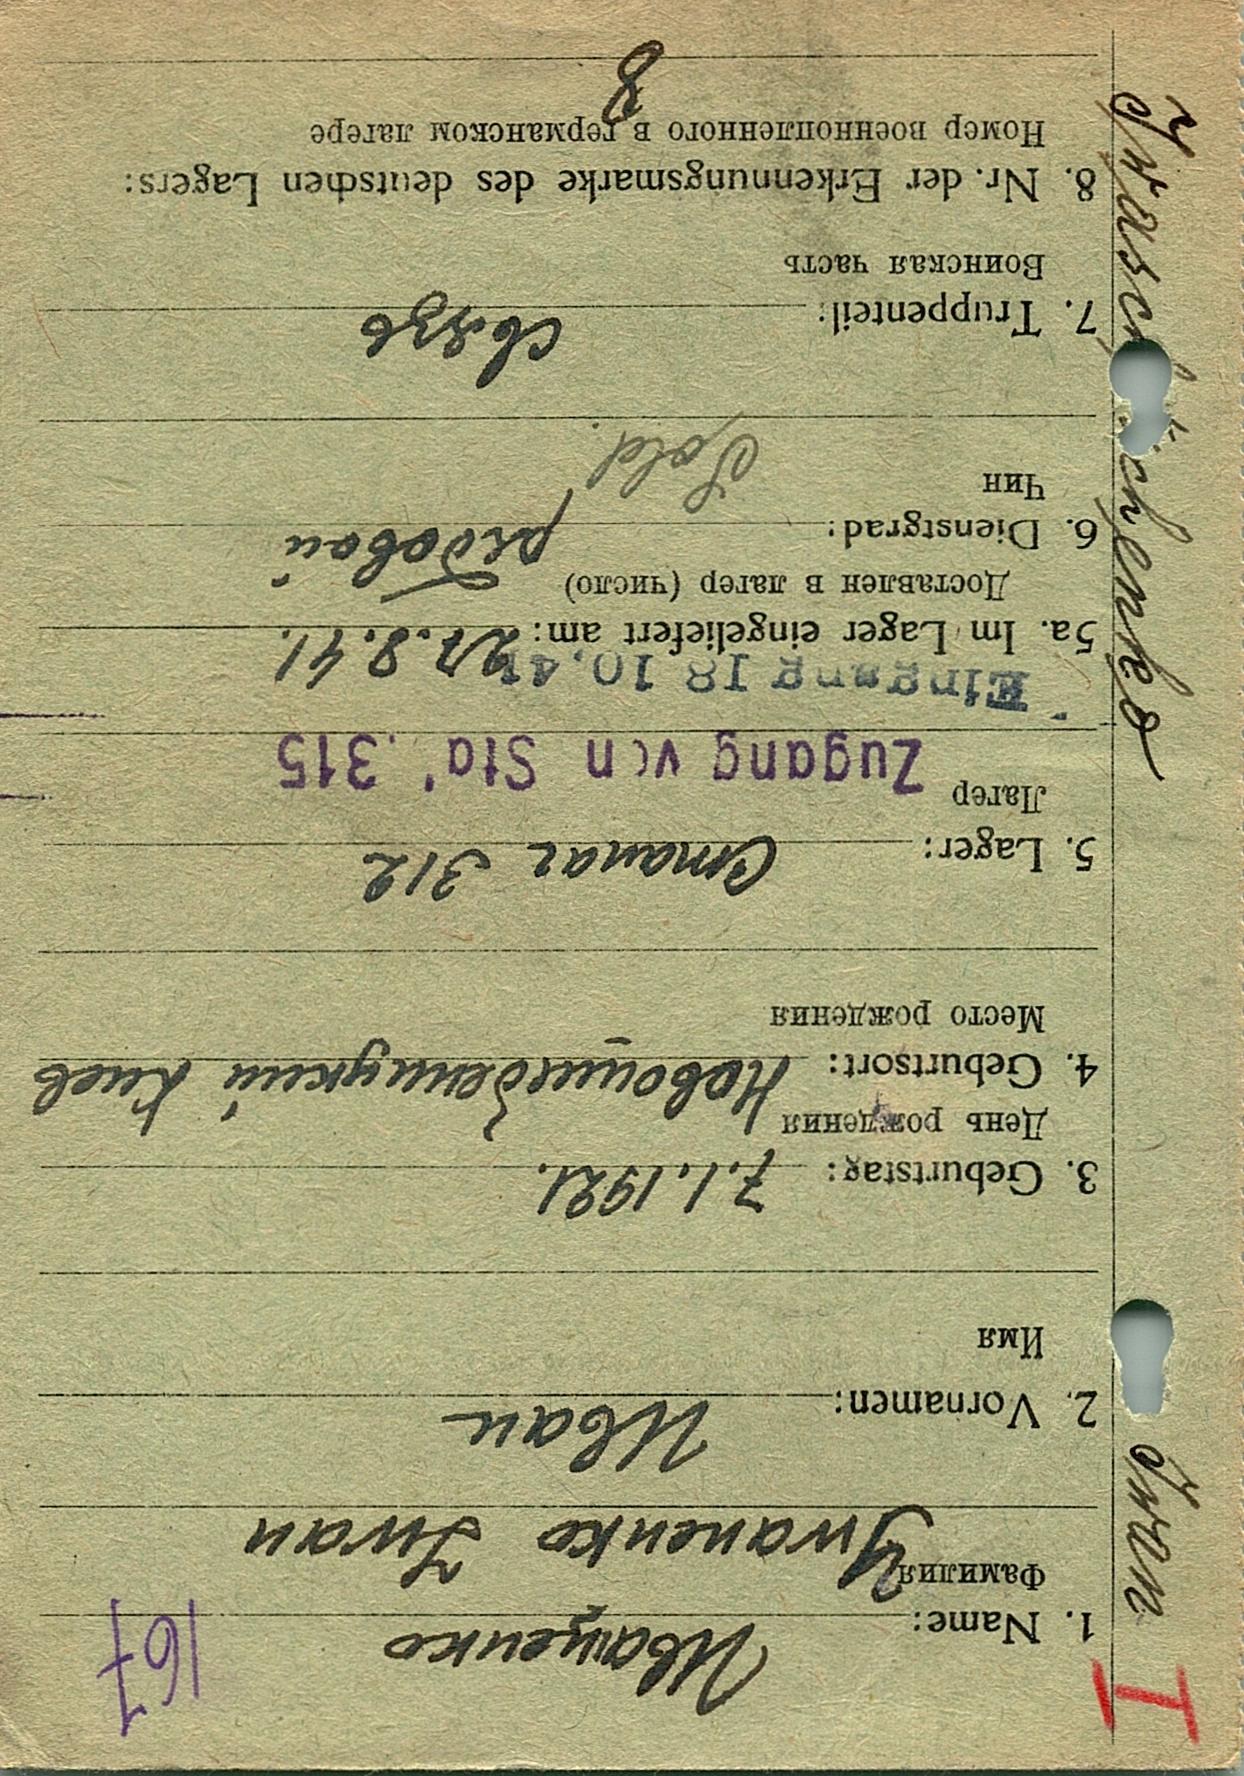 I
167
1. Name: Иващенко
Фамилия
Iwanenko Iwan
2. Vornamen: Иван
Имя
3. Geburtstag: 7.1.1921.
День рождения
4. Geburtsort: Киев
Место рождения
5. Lager: Сталаг 312
Лагер
Zugang von Sta'. 315
Eingang 18 10.41
5a. Im Lager eingeliefert am: 27.8.41.
Доставлен в лагер (число)
6. Dienstgrad: рядовой
Чин
Sold.
7. Truppenteil: связь
Воинская часть
8. Nr. der Erkennungsmarke des deutschen Lagers:
Номер военнопленного в германском лагере
8
Iwan